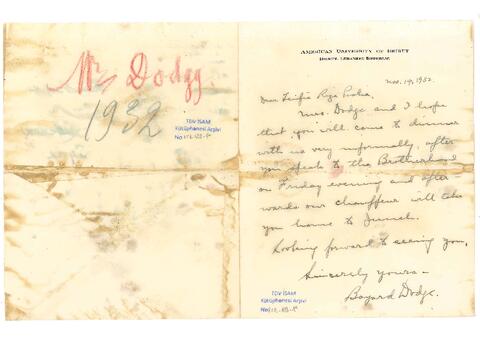 Mr Dodgg
1932
TDV İSAM
Kütüphanesi Arşivi
No
AMERICAN UNIVERSITY OF BEIRUT
BEIRUT, LEBANESE REPUBLIC
Nov. 19, 1932.
Dear
Mrs. Dodge and I hope
that you will come to dinner
with us very informally, after
you speak to the Brotherhood
on Friday evening and after-
wards our chauffeur will take
you home to
Looking forward to seeing you,
Sincerely yours -
Bayard Dodge.
TDV İSAM
Kütüphanesi Arşivi
No